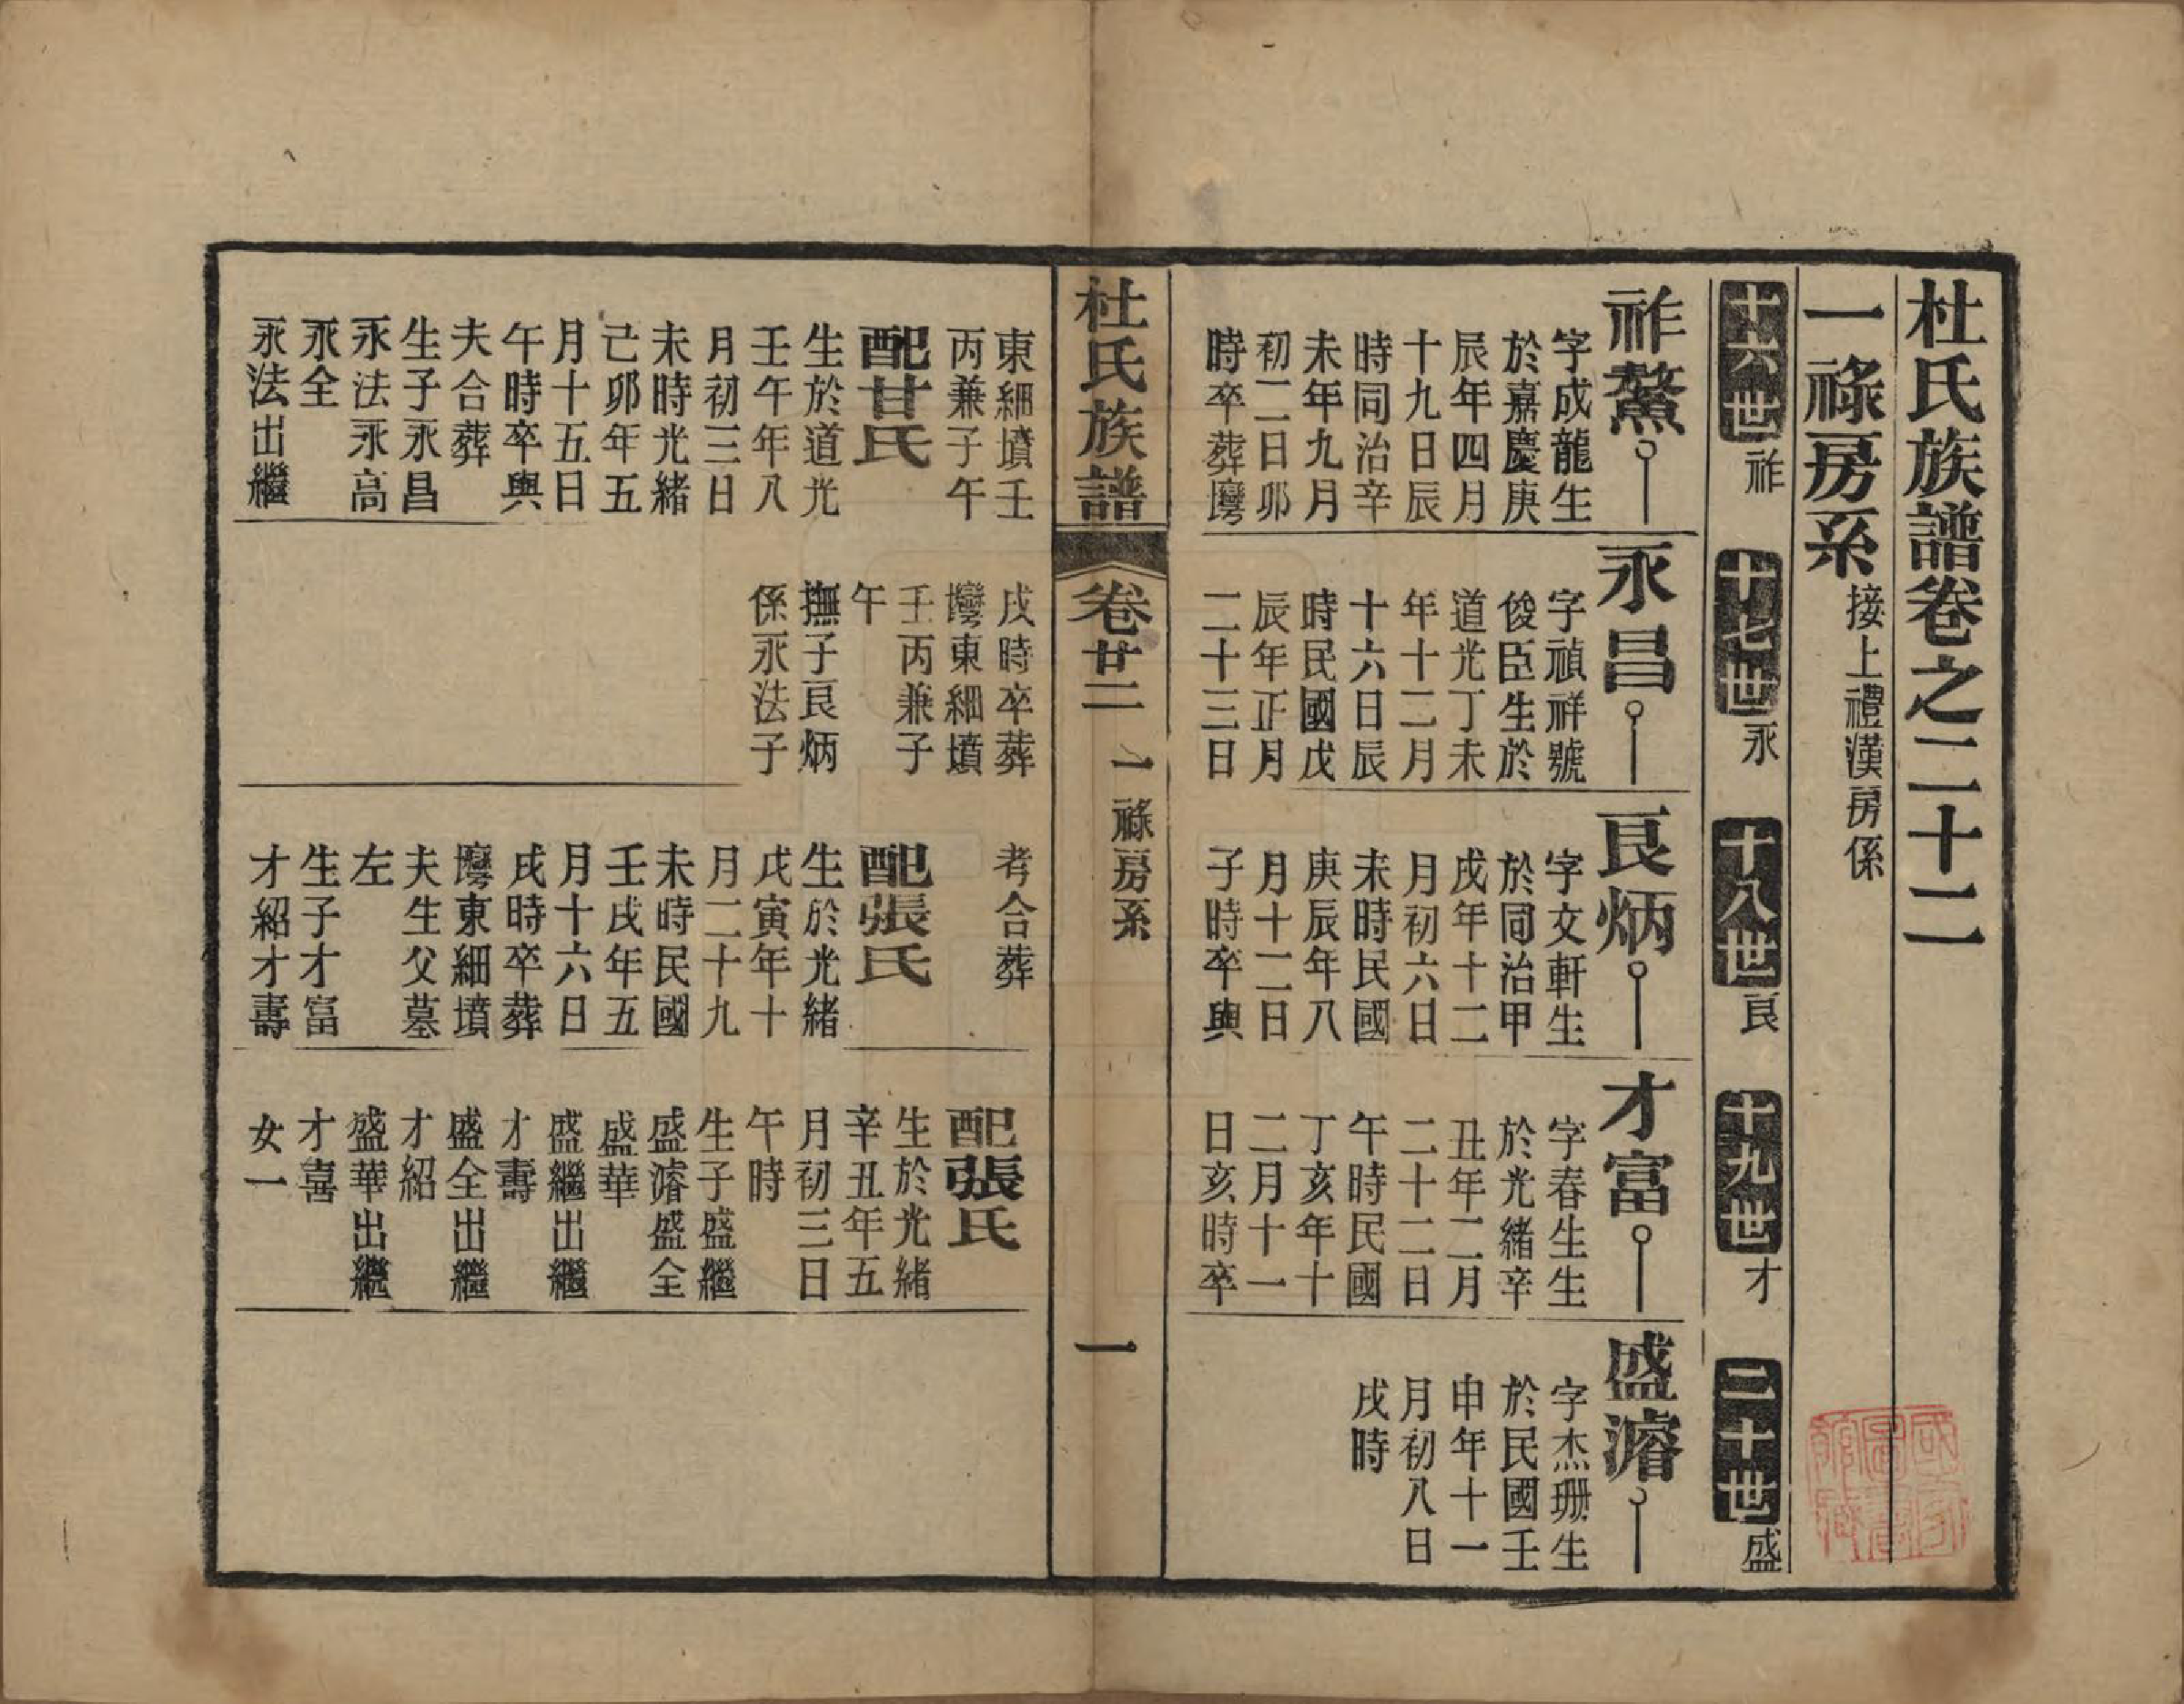 杜氏族譜卷之二十二
一祿房系 接上禮漢房係
十六世 祚
十七世 永
十八世 良
十九世 才
二十世 盛
祚鰲
字成龍生
於嘉慶庚
辰年四月
十九日辰
時同治辛
未年九月
初二日卯
時卒葬灣
永昌
字禎祥號
俊臣生於
道光丁未
年十二月
十六日辰
時民國戊
辰年正月
二十三日
良炳
字文軒生
於同治甲
戌年十二
月初六日
未時民國
庚辰年八
月十二日
子時卒與
才富
字春生生
於光緒辛
丑年二月
二十二日
午時民國
丁亥年十
二月十一
日亥時卒
盛濬
字杰珊生
於民國壬
申年十一
月初八日
戌時
杜氏族譜
卷廿二
一祿房系
一
東細墳壬
丙兼子午
配甘氏
生於道光
壬午年八
月初三日
未時光緒
己卯年五
月十五日
午時卒與
夫合葬
生子永昌
永法永高
永全
永法出繼
戌時卒葬
灣東細墳
壬丙兼子
午
撫子良炳
係永法子
考合葬
配張氏
生於光緒
戊寅年十
月二十九
未時民國
壬戌年五
月十六日
戌時卒葬
灣東細墳
夫生父墓
左
生子才富
才紹才壽
配張氏
生於光緒
辛丑年五
月初三日
午時
生子盛繼
盛濬盛全
盛華
盛繼出繼
才壽
盛全出繼
才紹
盛華出繼
才喜
女一